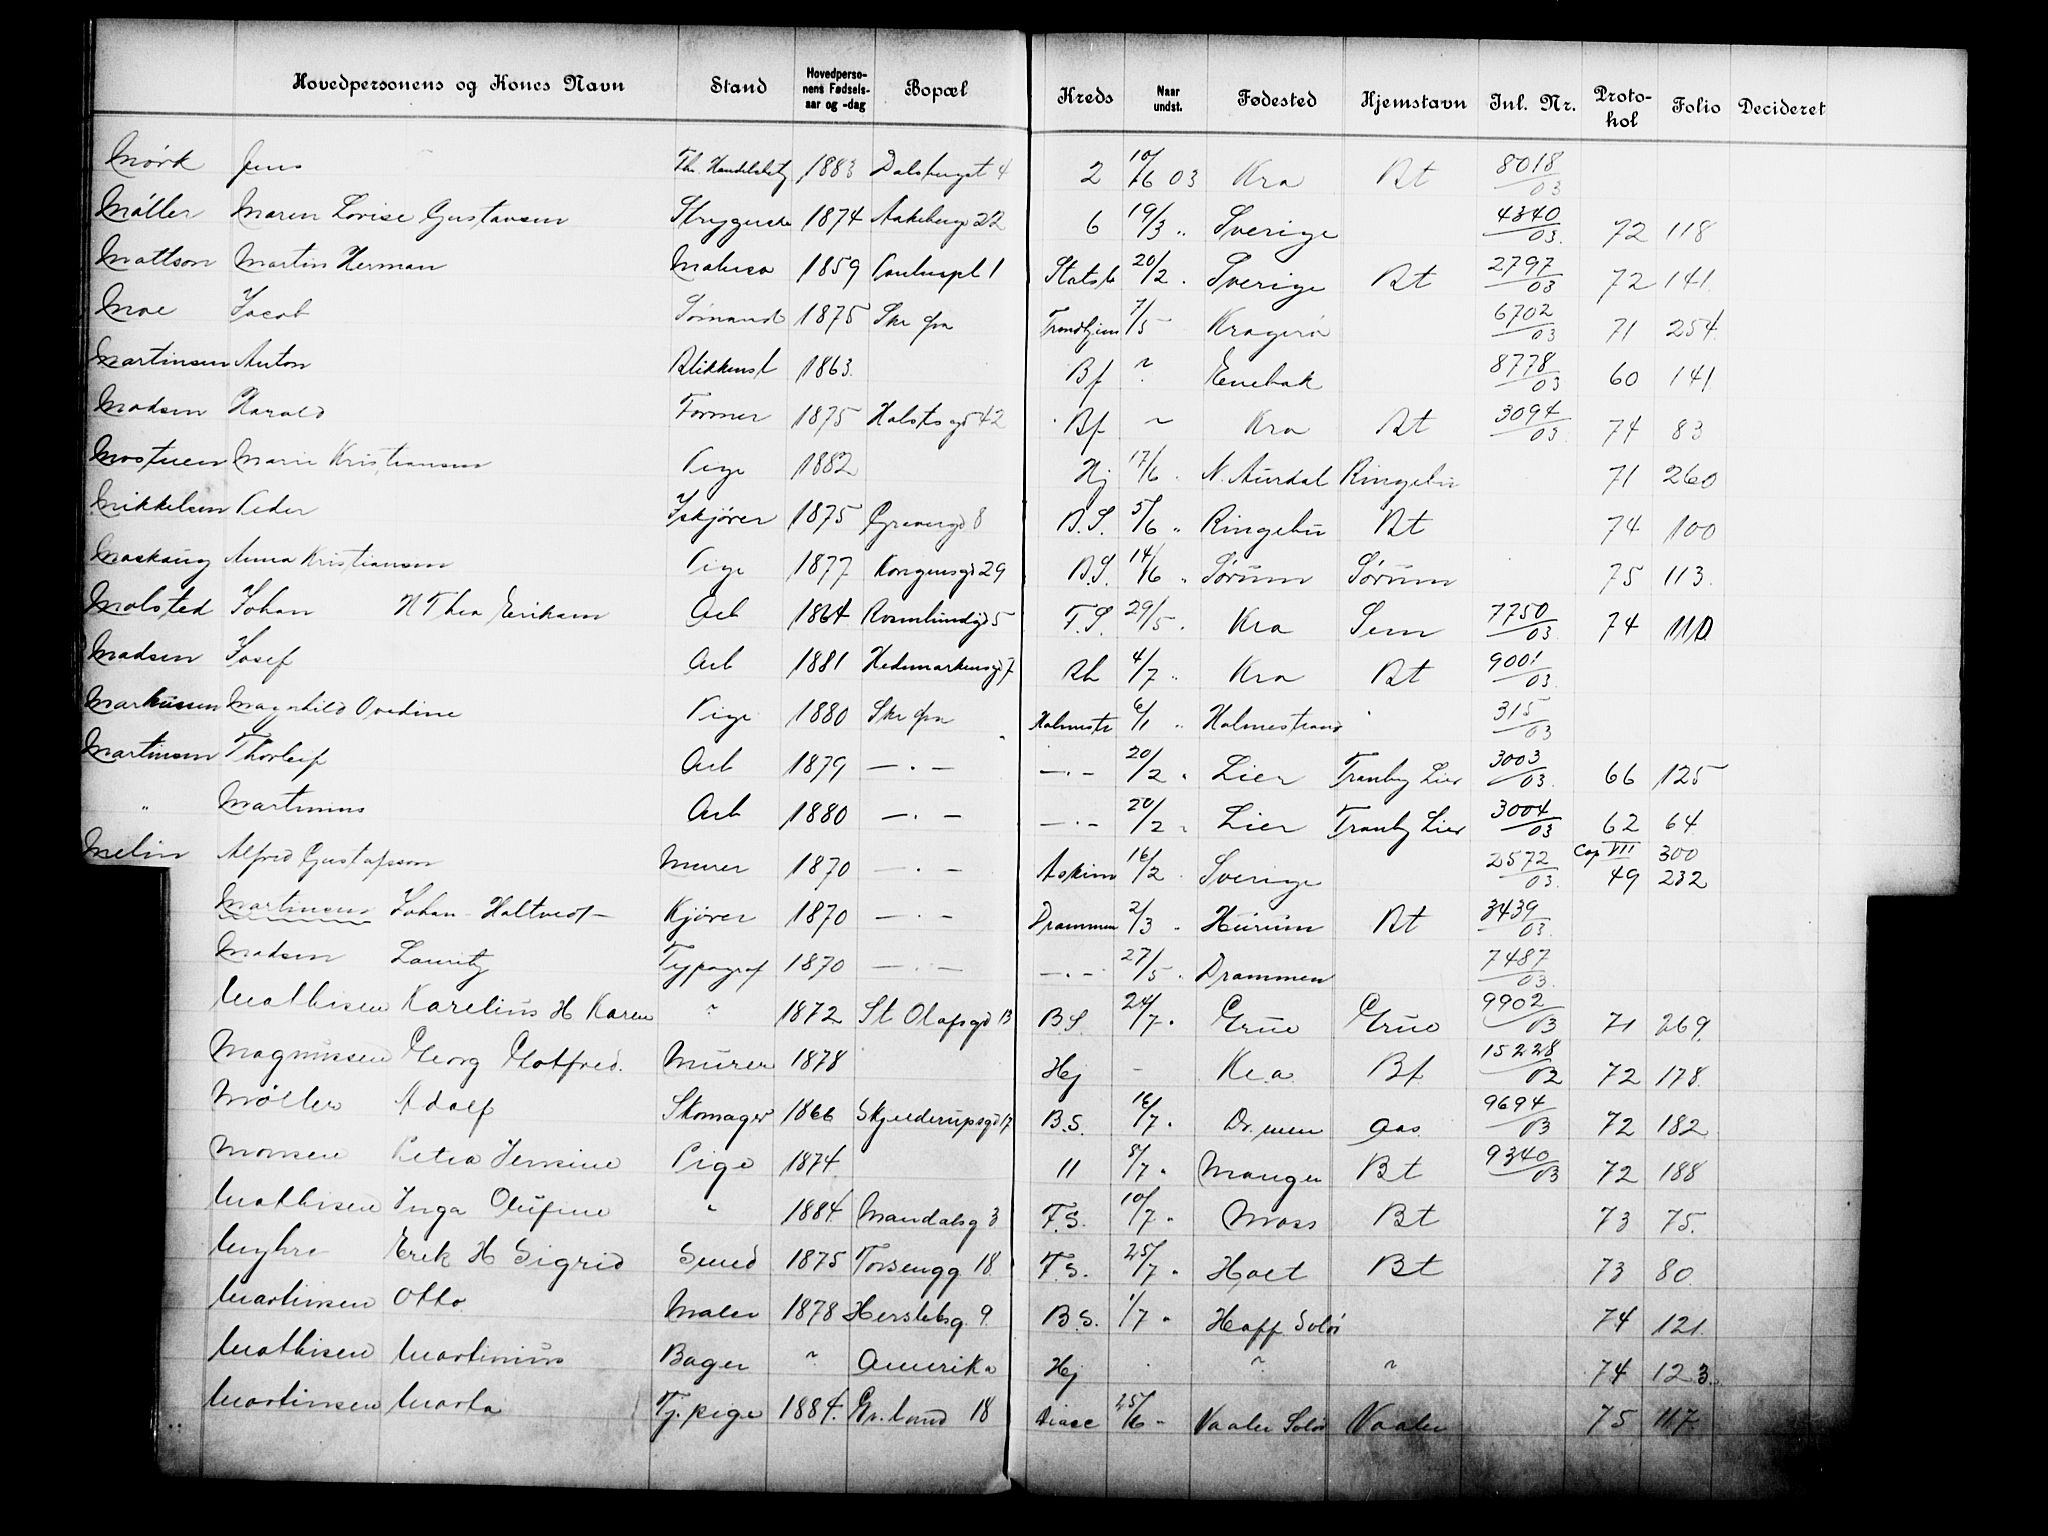 Hovedpersonens og Kones Navn Stand Hovedpersonens Fødselsaar og -dag Bopæl Kreds Naar undst. Fødested Hjemstavn Inl. Nr. Protokol Folio Decideret
Mörk Jens 1883 4 2 10/6 03 Kra Bt 8018/03
Möller Maren Lovise Gustavsen 1874 Aakebergv 22 6 19/3 " Sverige 4340/03 72 118
Mattson Martin Herman 1859 1 Statsb 20/2 . Sverige Bt 2797/03 72 141.
Moe Jacob Sömand 1875 Ske fra Trondhjem 7/5 Kragerö 6702/03 71 254.
Martinsen Anton Blikkensl 1863. Bf " Enebak 8778/03 60 141
Madsen Harald Former 1875 42 Bf " Kra Bt 3094/03 74 83
Mostuen Marie Kristiansen Pige 1882 Hj 17/6 . N. Aurdal Ringebu 71 260
Mikkelsen Peder Iskjörer 1875 8 B.S. 5/6 " Ringebu Bt 74 100
Anna Kristiansen Pige 1877 Kongensgd 29 B.S. 14/6 " Sörum Sörum 75 113.
Molsted Johan H Thea Eriksen Arb 1864 5 F.S. 29/5 . Kra Sem 7750/03 74 110
Madsen Josef Arb 1881 Hedemarkensgd 7 4/7 " Kra Bt 9001/03
Markussen Magnhild Ovedine Pige 1880 Ske fra Holmestr 6/1 " Holmestrand 315/03
Martinsen Thorleif Arb 1879 — . — — . — 20/2 . Lier Tranby Lier 3003/03 66 125
" Martinius Arb 1880 — . — — . — 20/2 . Lier Tranby Lier 3004/03 62 64
Melin Alfred Gustafsson Murer 1870 — . — Askim 16/2 . Sverige 2572/03 Cop VII 300 49 232
Martinsen Johan Haltvedt Kjörer 1870 — . — Drammen 2/3 . Hurum Bt 3439/03
Madsen Lauritz Typograf 1870 — . — — . — 27/5 . Drammen 7487/03
Mathisen Karelius H Karen " 1872 St Olafsgd 13 B.S. 24/7 . Grue Grue 9902/03 71 269.
Magnussen Georg Gotfred. Murer 1878 Hj - Kr.a. Bf 15228/02 72 178.
Möller Adolf Skomager 1866 Skjelderupsgd 17 B.S. 16/7 . Dr.men Aas 9694/03 72 182
Monsen Petra Jensine Pige 1874. 11 8/7 . Manger Bt 9340/03 72 188
Mathisen Inga Olufine " 1884. Mandalsg 3 F.S. 10/7 . Moss Bt 73 75.
Myhre Erik H Sigrid Smed 1875 Torsengg 18 F.S. 25/7 . Holt Bt 73 80.
Martinsen Otto Maler 1878 Herslebsg. 9 B.S. 1/7 . Hoff Solör 74 121.
Mathisen Martinius Bager " Amerika Hj . " " 74 123.
Martinsen Marta Tj.pige 1884. Gr.land 18 25/6 . Vaaler Solör Vaaler 75 117.